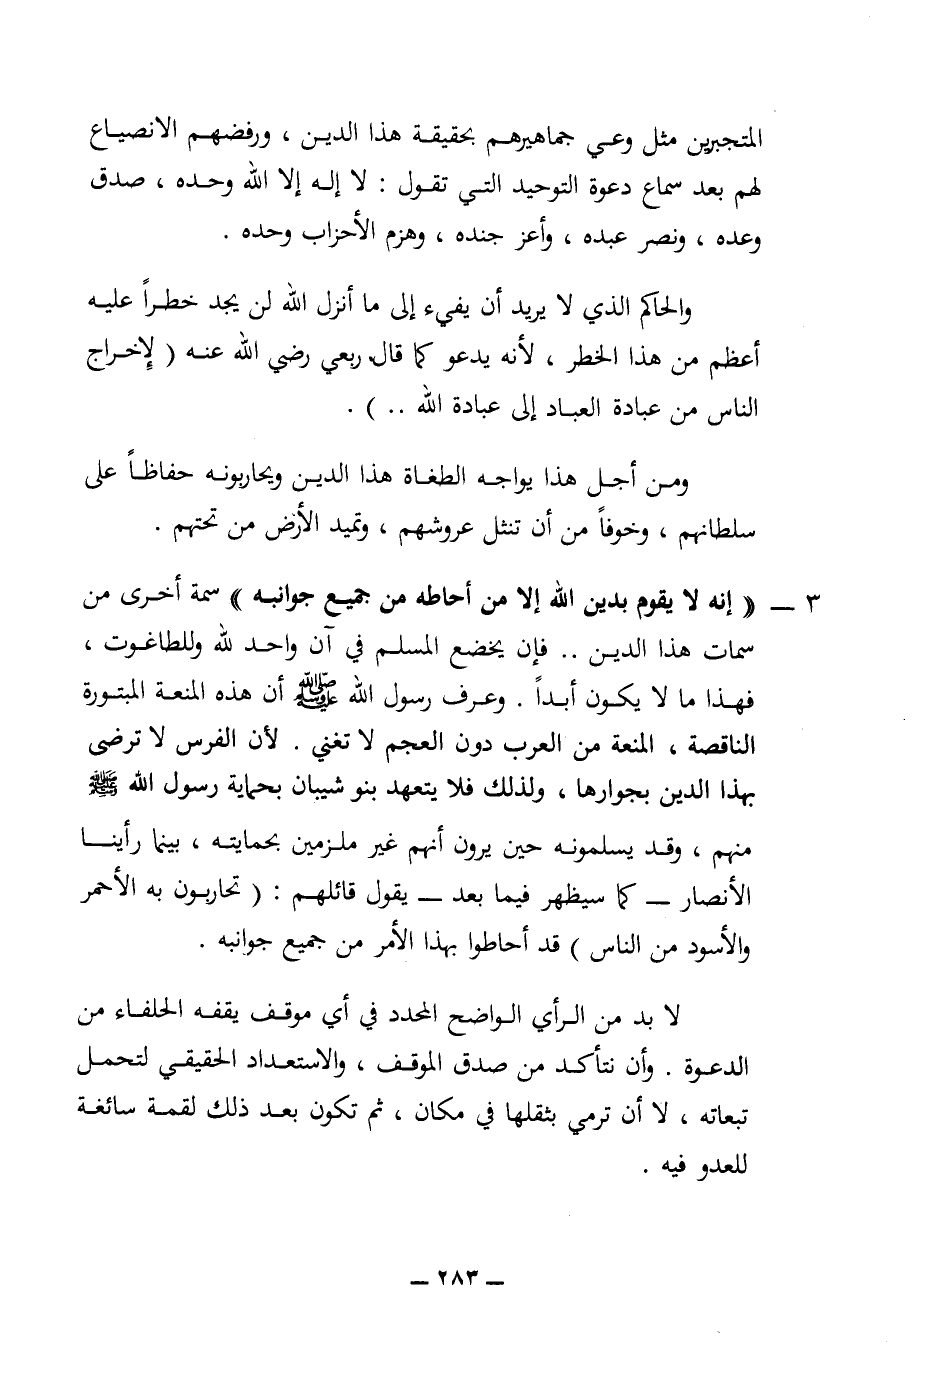 المتجبرين مثل وعي جماهيرهم بحقيقة هذا الدين ، ورفضهم الانصياع
لهم بعد سماع دعوة التوحيد التي تقول : لا إله إلا الله وحده ، صدق
وعده ، ونصر عبده ، وأعز جنده ، وهزم الأحزاب وحده .
والحاكم الذي لا يريد أن يفيء إلى ما أنزل الله لن يجد خطراً عليه
أعظم من هذا الخطر ، لأنه يدعو كما قال ربعي رضي الله عنه ( لإخراج
الناس من عبادة العباد إلى عبادة الله .. ) .
ومن أجل هذا يواجه الطغاة هذا الدين ويحاربونه حفاظاً على
سلطانهم ، وخوفاً من أن تنثل عروشهم ، وتميد الأرض من تحتهم .
٣ ـ « إنه لا يقوم بدين الله إلا من أحاطه من جميع جوانبه » سمة أخرى من
سمات هذا الدين .. فإن يخضع المسلم في آن واحد لله وللطاغوت ،
فهذا ما لا يكون أبداً . وعرف رسول الله ﷺ أن هذه المنعة المبتورة
الناقصة ، المنعة من العرب دون العجم لا تغني . لأن الفرس لا ترضى
بهذا الدين بجوارها ، ولذلك فلا يتعهد بنو شيبان بحماية رسول الله ﷺ
منهم ، وقد يسلمونه حين يرون أنهم غير ملزمين بحمايته ، بينما رأينا
الأنصار ـ كما سيظهر فيما بعد ـ يقول قائلهم : ( تحاربون به الأحمر
والأسود من الناس ) قد أحاطوا بهذا الأمر من جميع جوانبه .
لا بد من الرأي الواضح المحدد في أي موقف يقفه الحلفاء من
الدعوة . وأن نتأكد من صدق الموقف ، والاستعداد الحقيقي لتحمل
تبعاته ، لا أن ترمي بثقلها في مكان ، ثم تكون بعد ذلك لقمة سائغة
للعدو فيه .
ـ ٢٨٣ ـ